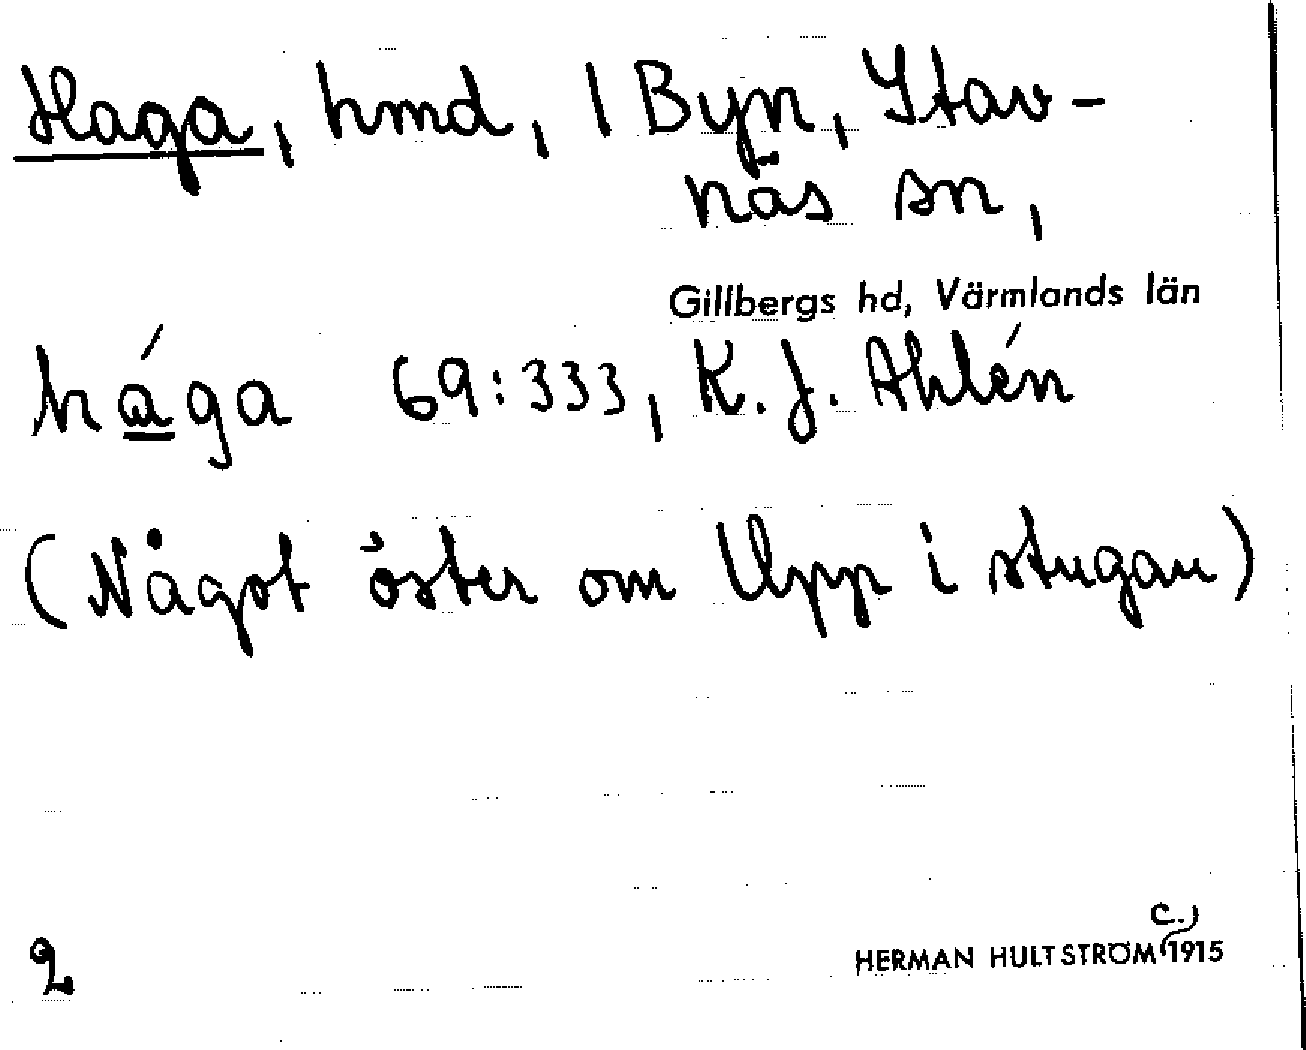 Haga, hmd, 1 Byn, Stav-
näs sn,
Gillbergs hd, Värmlands län
hága 69:333, K. J. Ahlén
(Något öster om Upp i stugan)
2
HERMAN HULTSTRÖM c.) 1915